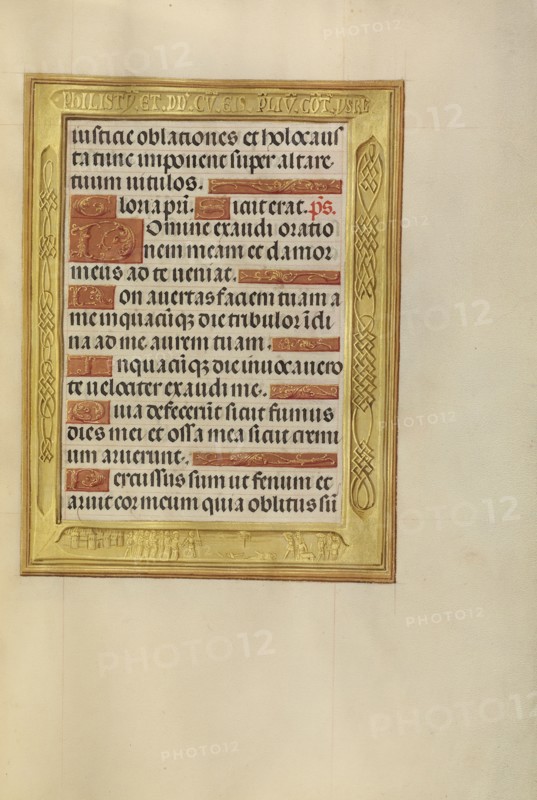 PHILISTV. ET. DD. CV. EIS. PLIV. COT. VSRE
iusticie oblationes et holocaus
ta tunc imponent super altare
tuum vitulos.
Gloria pri. Sicut erat. ps.
Domine exaudi oratio
nem meam et clamor
meus ad te veniat.
Non avertas faciem tuam a
me in quacūqz die tribulor īcli
na ad me aurem tuam.
In quacūqz die invocavero
te velociter exaudi me.
Quia defecerūt sicut fumus
dies mei et ossa mea sicut cremi
um aruerunt.
Percussus sum ut fenum et
aruit cor meum quia oblitus sū
PHOTO12